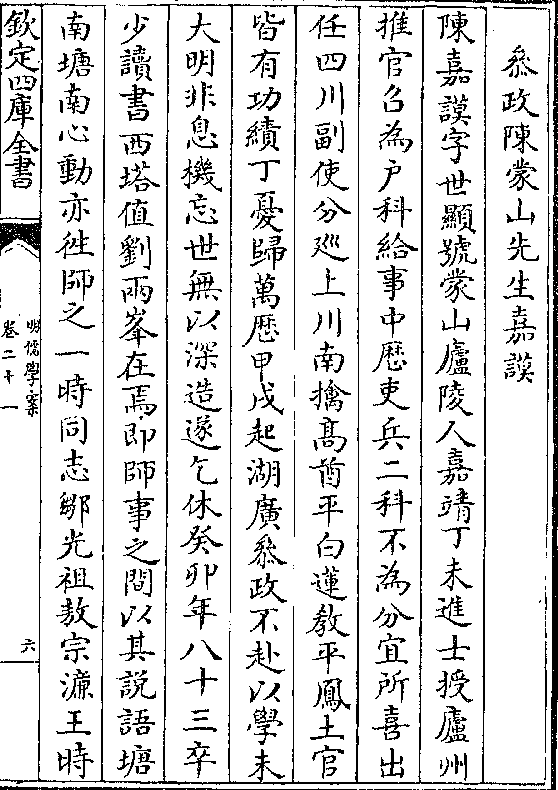 叅政陳蒙山先生嘉謨
陳嘉謨字世顯號蒙山廬陵人嘉靖丁未進士授廬州
推官召為户科給事中歴吏兵二科不為分宜所喜出
任四川副使分廵上川南擒髙酋平白蓮教平鳳土官
皆有功績丁憂歸萬歴甲戌起湖廣叅政不赴以學未
大明非息機忘世無以深造遂乞休癸卯年八十三卒
少讀書西塔值劉兩峯在焉即師事之間以其説語塘
南塘南心動亦徃師之一時同志鄒光祖敖宗濂王時
欽定四庫全書
明儒學案
卷二十一
六